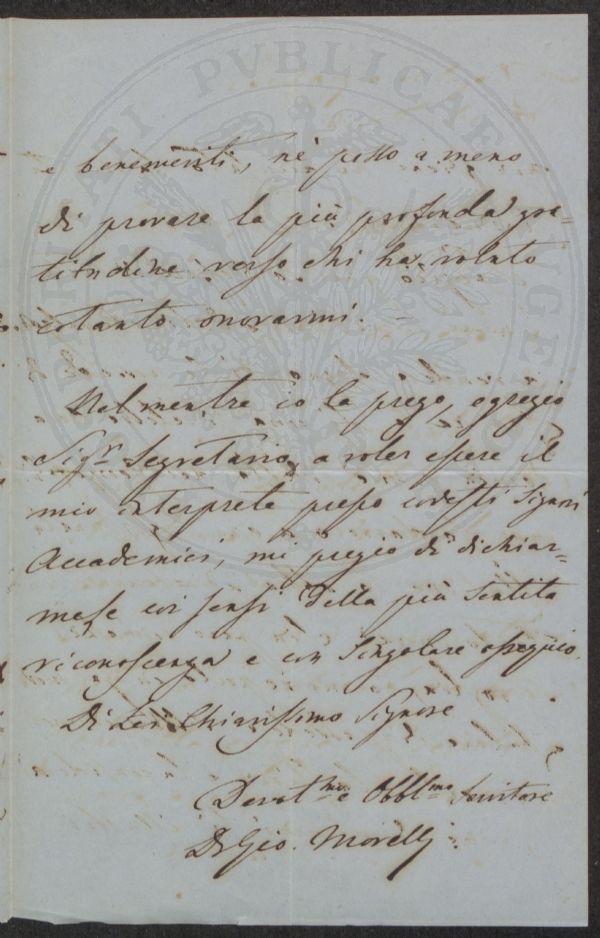 SEPARATI PVBLICAE
e benemeriti, nè posso a meno
di provare la più profonda gra-
titudine verso chi ha voluto
cotanto onorarmi. –
Nel mentre io la prego, egregio
Sigr. Segretario, a voler essere il
mio interprete presso codesti Signori
Accademici, mi pregio di dichiar-
mele coi sensi della più sentita
riconoscenza e con singolare ossequio.
Di Lei Chiarissimo Signore
Devotmo e Obblmo Servitore
Dr Gio. Morelli.